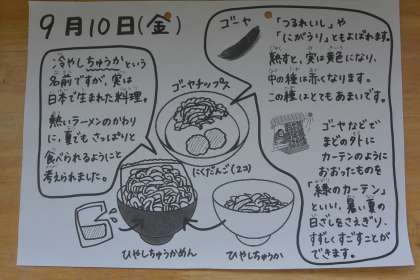 9月10日(金)
冷やしちゅうかという
名前ですが、実は
日本で生まれた料理。
熱いラーメンのかわり
に、夏でもさっぱりと
食べられるようにと
考えられました。
ゴーヤ
「つるれいし」や
「にがうり」ともよばれます。
熟すと、実は黄色になり、
中の種は赤くなります。
この種はとてもあまいです。
ゴーヤチップス
にくだんご(2コ)
ひやしちゅうかめん
ひやしちゅうか
ゴーヤなどで
まどの外に
カーテンのように
おおったものを
「緑のカーテン」
といい、暑い夏の
日ざしをさえぎり、
すずしくすごすことが
できます。